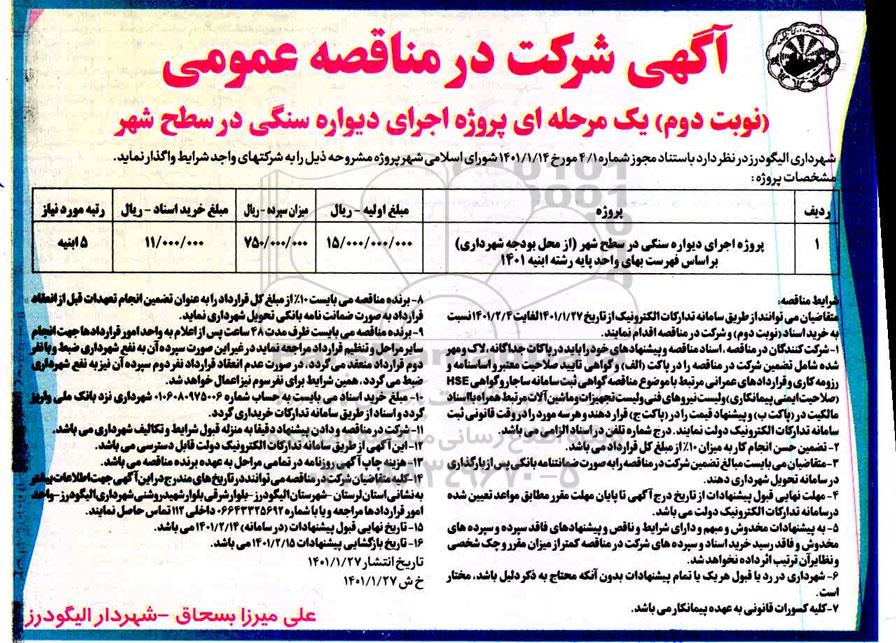 آگهی شرکت در مناقصه عمومی
(نوبت دوم) یک مرحله ای پروژه اجرای دیواره سنگی در سطح شهر
شهرداری الیگودرز در نظر دارد باستناد مجوز شماره ۴/۱ مورخ ۱۴۰۱/۱/۱۴ شورای اسلامی شهر پروژه مشروحه ذیل را به شرکتهای واجد شرایط واگذار نماید.
مشخصات پروژه :
ردیف پروژه مبلغ اولیه - ریال میزان سپرده - ریال مبلغ خرید اسناد - ریال رتبه مورد نیاز
۱ پروژه اجرای دیواره سنگی در سطح شهر (از محل بودجه شهرداری) ۱۵/۰۰۰/۰۰۰/۰۰۰ ۷۵۰/۰۰۰/۰۰۰ ۱۱/۰۰۰/۰۰۰ ۵ ابنیه
براساس فهرست بهای واحد پایه رشته ابنیه ۱۴۰۱
شرایط مناقصه:
متقاضیان می توانند از طریق سامانه تدارکات الکترونیک از تاریخ ۱۴۰۱/۱/۲۷ لغایت ۱۴۰۱/۲/۴ نسبت
به خرید اسناد (نوبت دوم) و شرکت در مناقصه اقدام نمایند.
۱- شرکت کنندگان در مناقصه ، اسناد مناقصه و پیشنهادهای خود را باید در پاکات جداگانه ، لاک و مهر
شده شامل تضمین شرکت در مناقصه را در پاکت (الف) و گواهی تایید صلاحیت معتبر و اساسنامه و
رزومه کاری و قراردادهای عمرانی مرتبط با موضوع مناقصه گواهی ثبت سامانه ساجار و گواهی HSE
(صلاحیت ایمنی پیمانکاری) و لیست نیروهای فنی و لیست تجهیزات و ماشین آلات مرتبط همراه با اسناد
مالکیت در (پاکت ب) و پیشنهاد قیمت را در (پاکت ج) قرار دهند و هر سه مورد را در وقت قانونی ثبت
سامانه تدارکات الکترونیک دولت نمایند. درج شماره تلفن در اسناد الزامی می باشد.
۲- تضمین حسن انجام کار به میزان ۱۰٪ از مبلغ کل قرارداد می باشد.
۳- متقاضیان می بایست مبالغ تضمین شرکت در مناقصه را به صورت ضمانتنامه بانکی پس از بارگذاری
در سامانه تحویل شهرداری دهند.
۴- مهلت نهایی قبول پیشنهادات از تاریخ درج آگهی تا پایان مهلت مقرر مطابق مواعد تعیین شده
در سامانه تدارکات الکترونیک دولت می باشد.
۵- به پیشنهادات مخدوش و مبهم و دارای شرایط و ناقص و پیشنهادهای فاقد سپرده و سپرده های
مخدوش و فاقد رسید خرید اسناد و سپرده های شرکت در مناقصه کمتر از میزان مقرر و چک شخصی
و نظایر آن ترتیب اثر داده نخواهد شد.
۶- شهرداری در رد یا قبول هر یک یا تمام پیشنهادات بدون آنکه محتاج به ذکر دلیل باشد، مختار
است.
۷- کلیه کسورات قانونی به عهده پیمانکار می باشد.
۸- برنده مناقصه می بایست ۱۰٪ از مبلغ کل قرارداد را به عنوان تضمین انجام تعهدات قبل از انعقاد
قرارداد به صورت ضمانت نامه بانکی تحویل شهرداری نماید.
۹- برنده مناقصه می بایست ظرف مدت ۴۸ ساعت پس از اعلام به واحد امور قراردادها جهت انجام
سایر مراحل و تنظیم قرارداد مراجعه نماید در غیر این صورت سپرده آن به نفع شهرداری ضبط و با نفر
دوم قرارداد منعقد می گردد ، در صورت عدم انعقاد قرارداد نفر دوم سپرده آن نیز به نفع شهرداری
ضبط می گردد ، همین شرایط برای نفر سوم نیز اعمال خواهد شد.
۱۰- مبلغ خرید اسناد می بایست به حساب شماره ۰۱۰۶۰۸۰۹۷۵۰۰۶ شهرداری نزد بانک ملی واریز
گردد و اسناد از طریق سامانه تدارکات خریداری گردد.
۱۱- شرکت در مناقصه و دادن پیشنهاد دقیقا به منزله قبول شرایط و تکالیف شهرداری می باشد.
۱۲- این آگهی از طریق سامانه تدارکات الکترونیک دولت قابل دسترسی می باشد.
۱۳- هزینه چاپ آگهی روزنامه در تمامی مراحل به عهده برنده مناقصه می باشد.
۱۴- کلیه متقاضیان شرکت در مناقصه می توانند در تاریخ های مندرج در این آگهی جهت اطلاعات بیشتر
به نشانی استان لرستان - شهرستان الیگودرز - بلوار شرقی بلوار شهید روشنی شهرداری الیگودرز - واحد
امور قراردادها مراجعه و یا با شماره ۰۶۶۴۳۳۲۵۶۹۲ داخلی ۱۱۲ تماس حاصل نمایند.
۱۵- تاریخ نهایی قبول پیشنهادات (در سامانه) ۱۴۰۱/۲/۱۴ می باشد.
۱۶- تاریخ بازگشایی پیشنهادات ۱۴۰۱/۲/۱۵ می باشد.
تاریخ انتشار ۱۴۰۱/۱/۲۷
خ ش ۱۴۰۱/۱/۲۷
علی میرزا بسحاق - شهردار الیگودرز